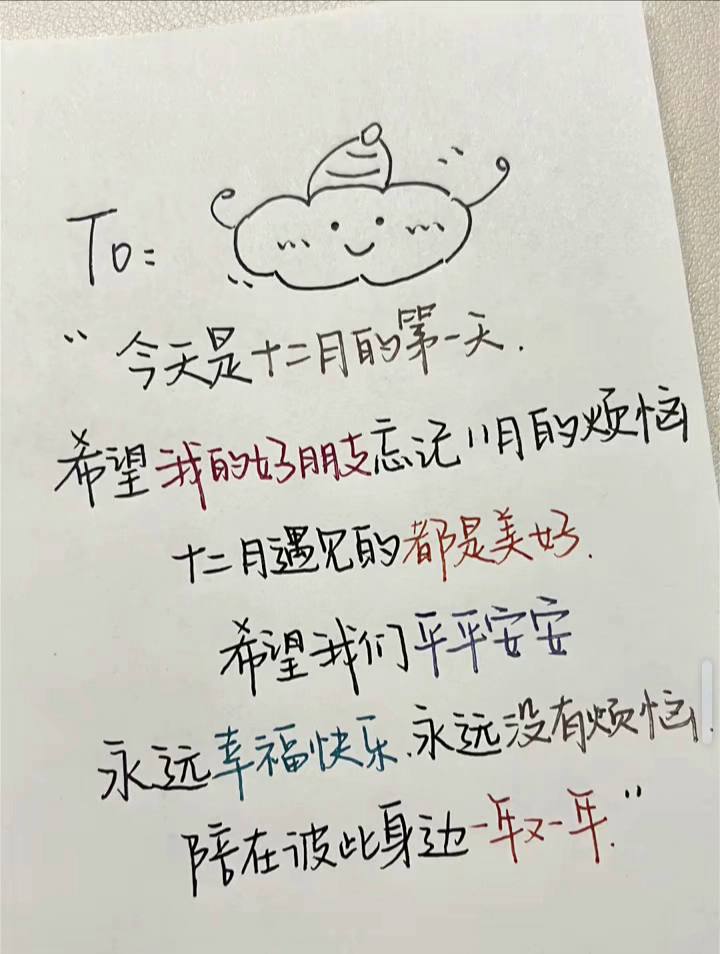 To:
“今天是十二月的第一天.
希望我的好朋友忘记11月的烦恼
十二月遇见的都是美好.
希望我们平平安安
永远幸福快乐.永远没有烦恼.
陪在彼此身边一年又一年.”